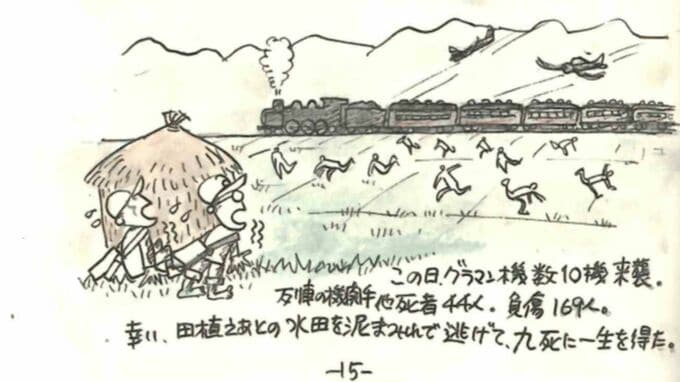 この日、グラマン機数10機来襲。
列車の機関手他死者44人。負傷169人。
幸い、田植えあとの水田を泥まみれで逃げて、九死に一生を得た。
-15-